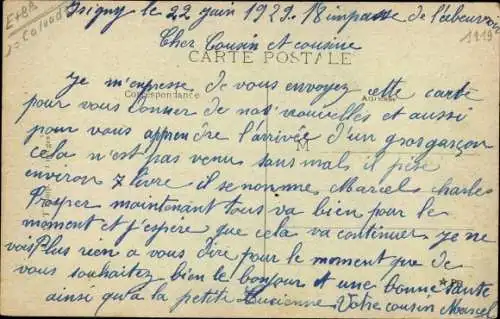 Isigny le 22 juin 1929. 18 impasse de l'abeuvroir
Cher Cousin et cousine
CARTE POSTALE
Je m'empresse de vous envoyez cette carte
Correspondance
Adresse
pour vous donner de nos nouvelles et aussi
pour vous apprendre l'arrivée d'un gros garçon
M
cela n'est pas venu sans mal il pèse
environ 7 livre il se nomme Marcel Charles
Prosper maintenant tous va bien pour le
moment et j'espere que cela va continuer je ne
vois Plus rien a vous dire pour le moment que de
vous souhaitez bien le bonjour et une bonne sante
ainsi qu'a la petite Lucienne Votre cousin Marcel